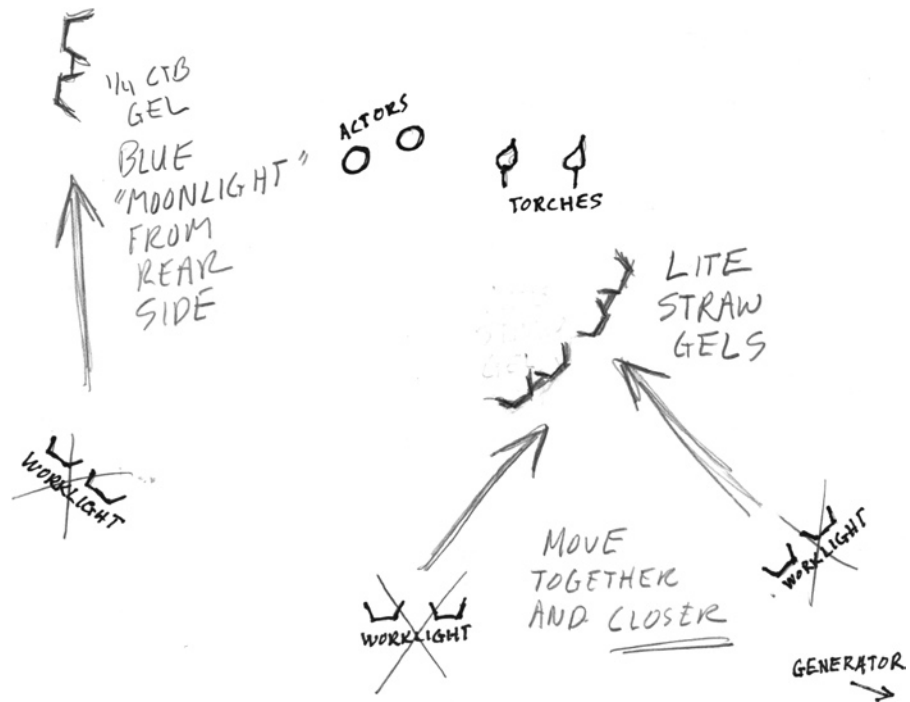 1/4 CTB
GEL
BLUE
"MOONLIGHT"
FROM
REAR
SIDE
ACTORS
TORCHES
LITE
STRAW
GELS
WORKLIGHT
WORKLIGHT
WORKLIGHT
MOVE
TOGETHER
AND CLOSER
GENERATOR